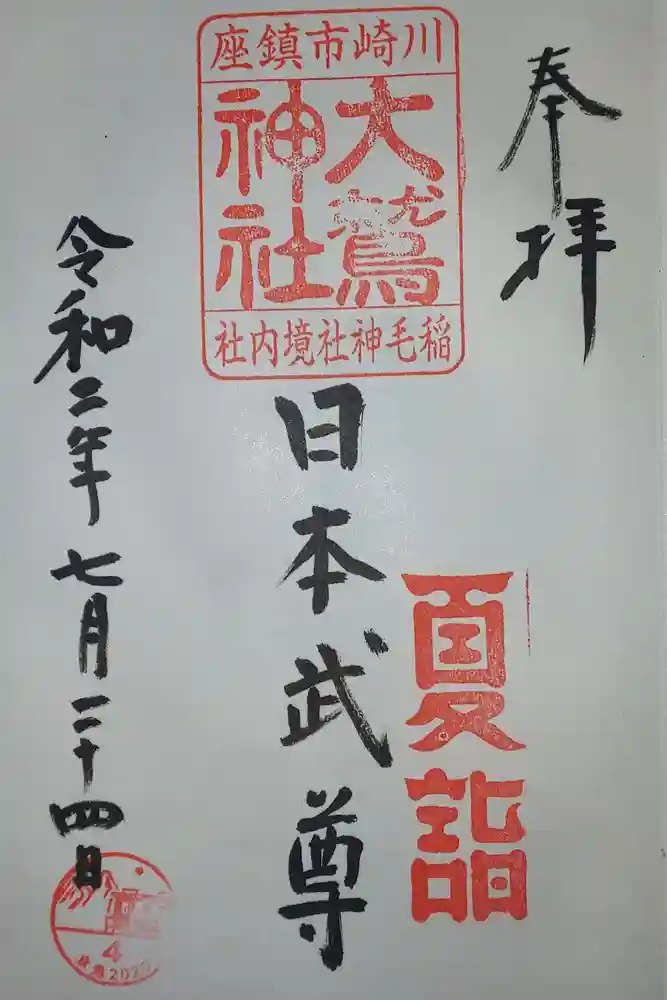 奉拝
川崎市鎮座
大鷲
神社
稲毛神社境内社
夏詣
日本武尊
令和二年七月二十四日
4